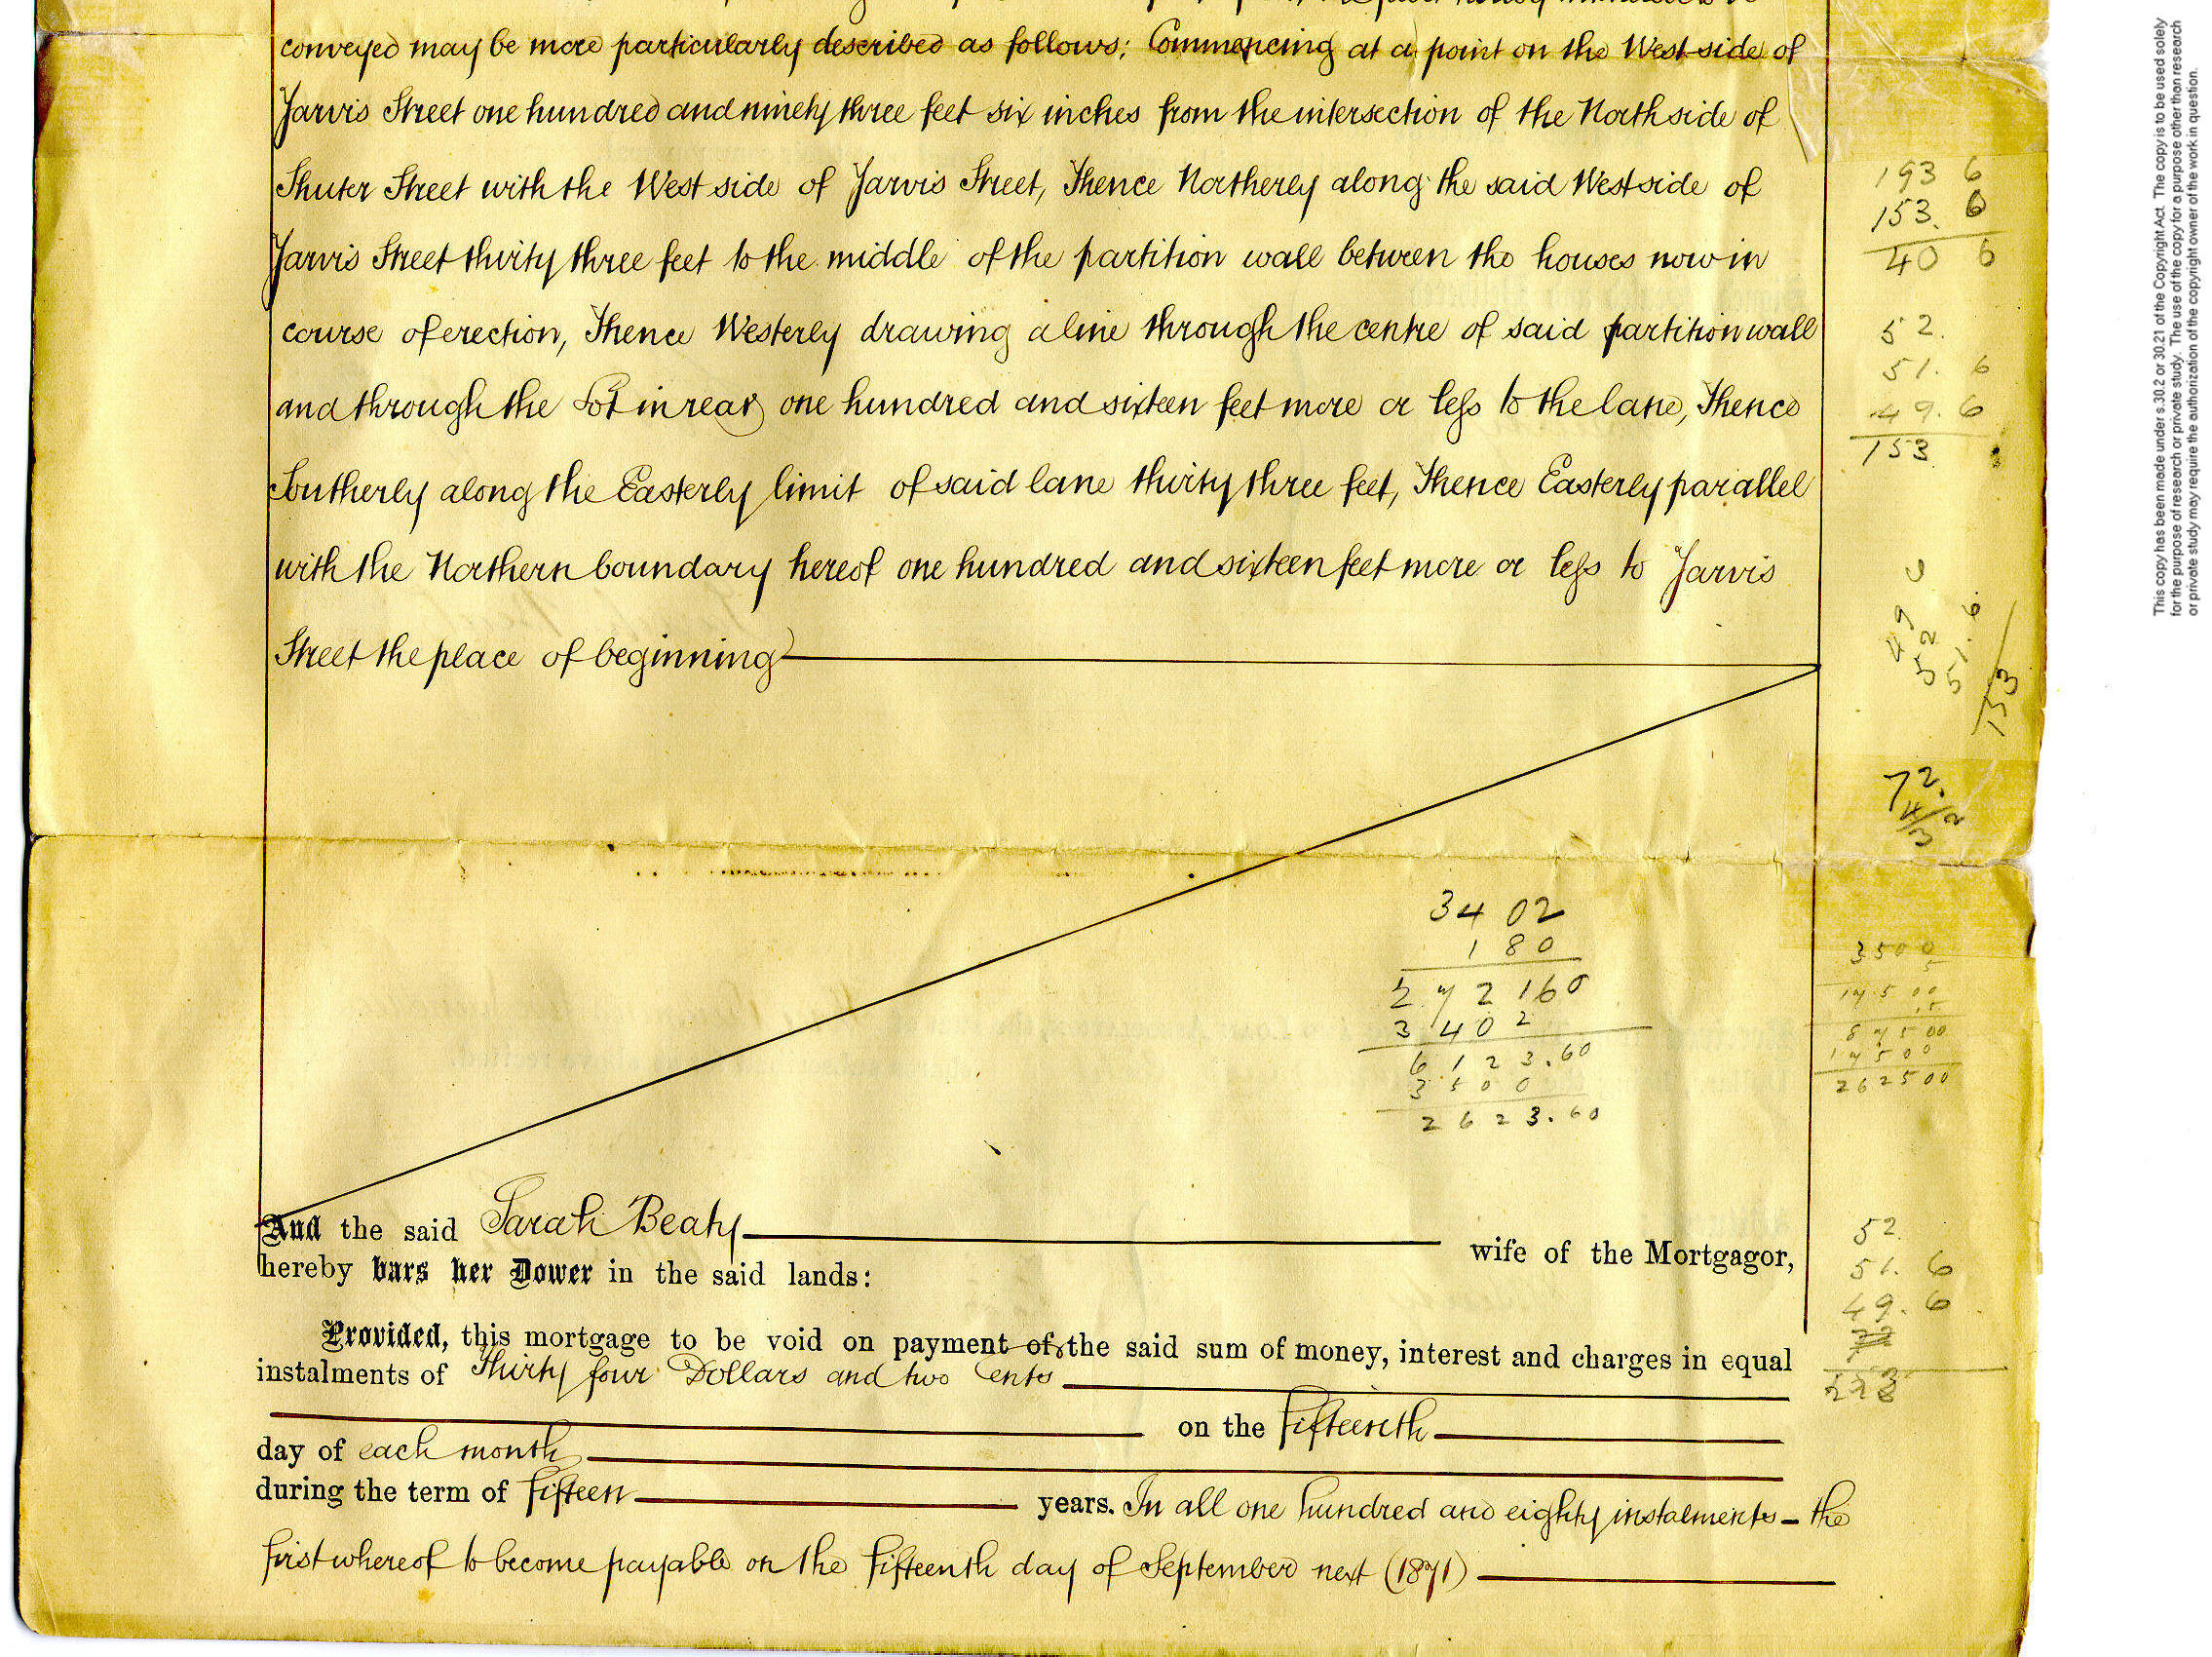 conveyed may be more particularly described as follows; Commencing at a point on the West side of
Jarvis Street one hundred and ninety three feet six inches from the intersection of the North side of
Shuter Street with the West side of Jarvis Street, Thence Northerly along the said West side of
Jarvis Street thirty three feet to the middle of the partition wall between the houses now in
course of erection, Thence Westerly drawing a line through the centre of said partition wall
and through the Lot in rear one hundred and sixteen feet more or less to the lane, Thence
Southerly along the Easterly limit of said lane thirty three feet, Thence Easterly parallel
with the Northern boundary hereof one hundred and sixteen feet more or less to Jarvis
Street the place of beginning
193 6
153. 6
40 6
52.
51. 6
49. 6
153
49 6
52
51. 6
153
72.
3402
180
272160
3402
6123.60
3500
2623.60
3500
5
17500
15
87500
17500
262500
And the said Sarah Beaty wife of the Mortgagor,
hereby bars her Dower in the said lands:
52.
51. 6
49. 6
Provided, this mortgage to be void on payment of the said sum of money, interest and charges in equal
instalments of Thirty four Dollars and two Cents
on the fifteenth
day of each month
during the term of fifteen years. In all one hundred and eighty instalments - the
first whereof to become payable on the fifteenth day of September next (1871)
This copy has been made under s.30.2 or 30.21 of the Copyright Act. The copy is to be used solely
for the purpose of research or private study. The use of the copy for a purpose other than research
or private study may require the authorization of the copyright owner of the work in question.